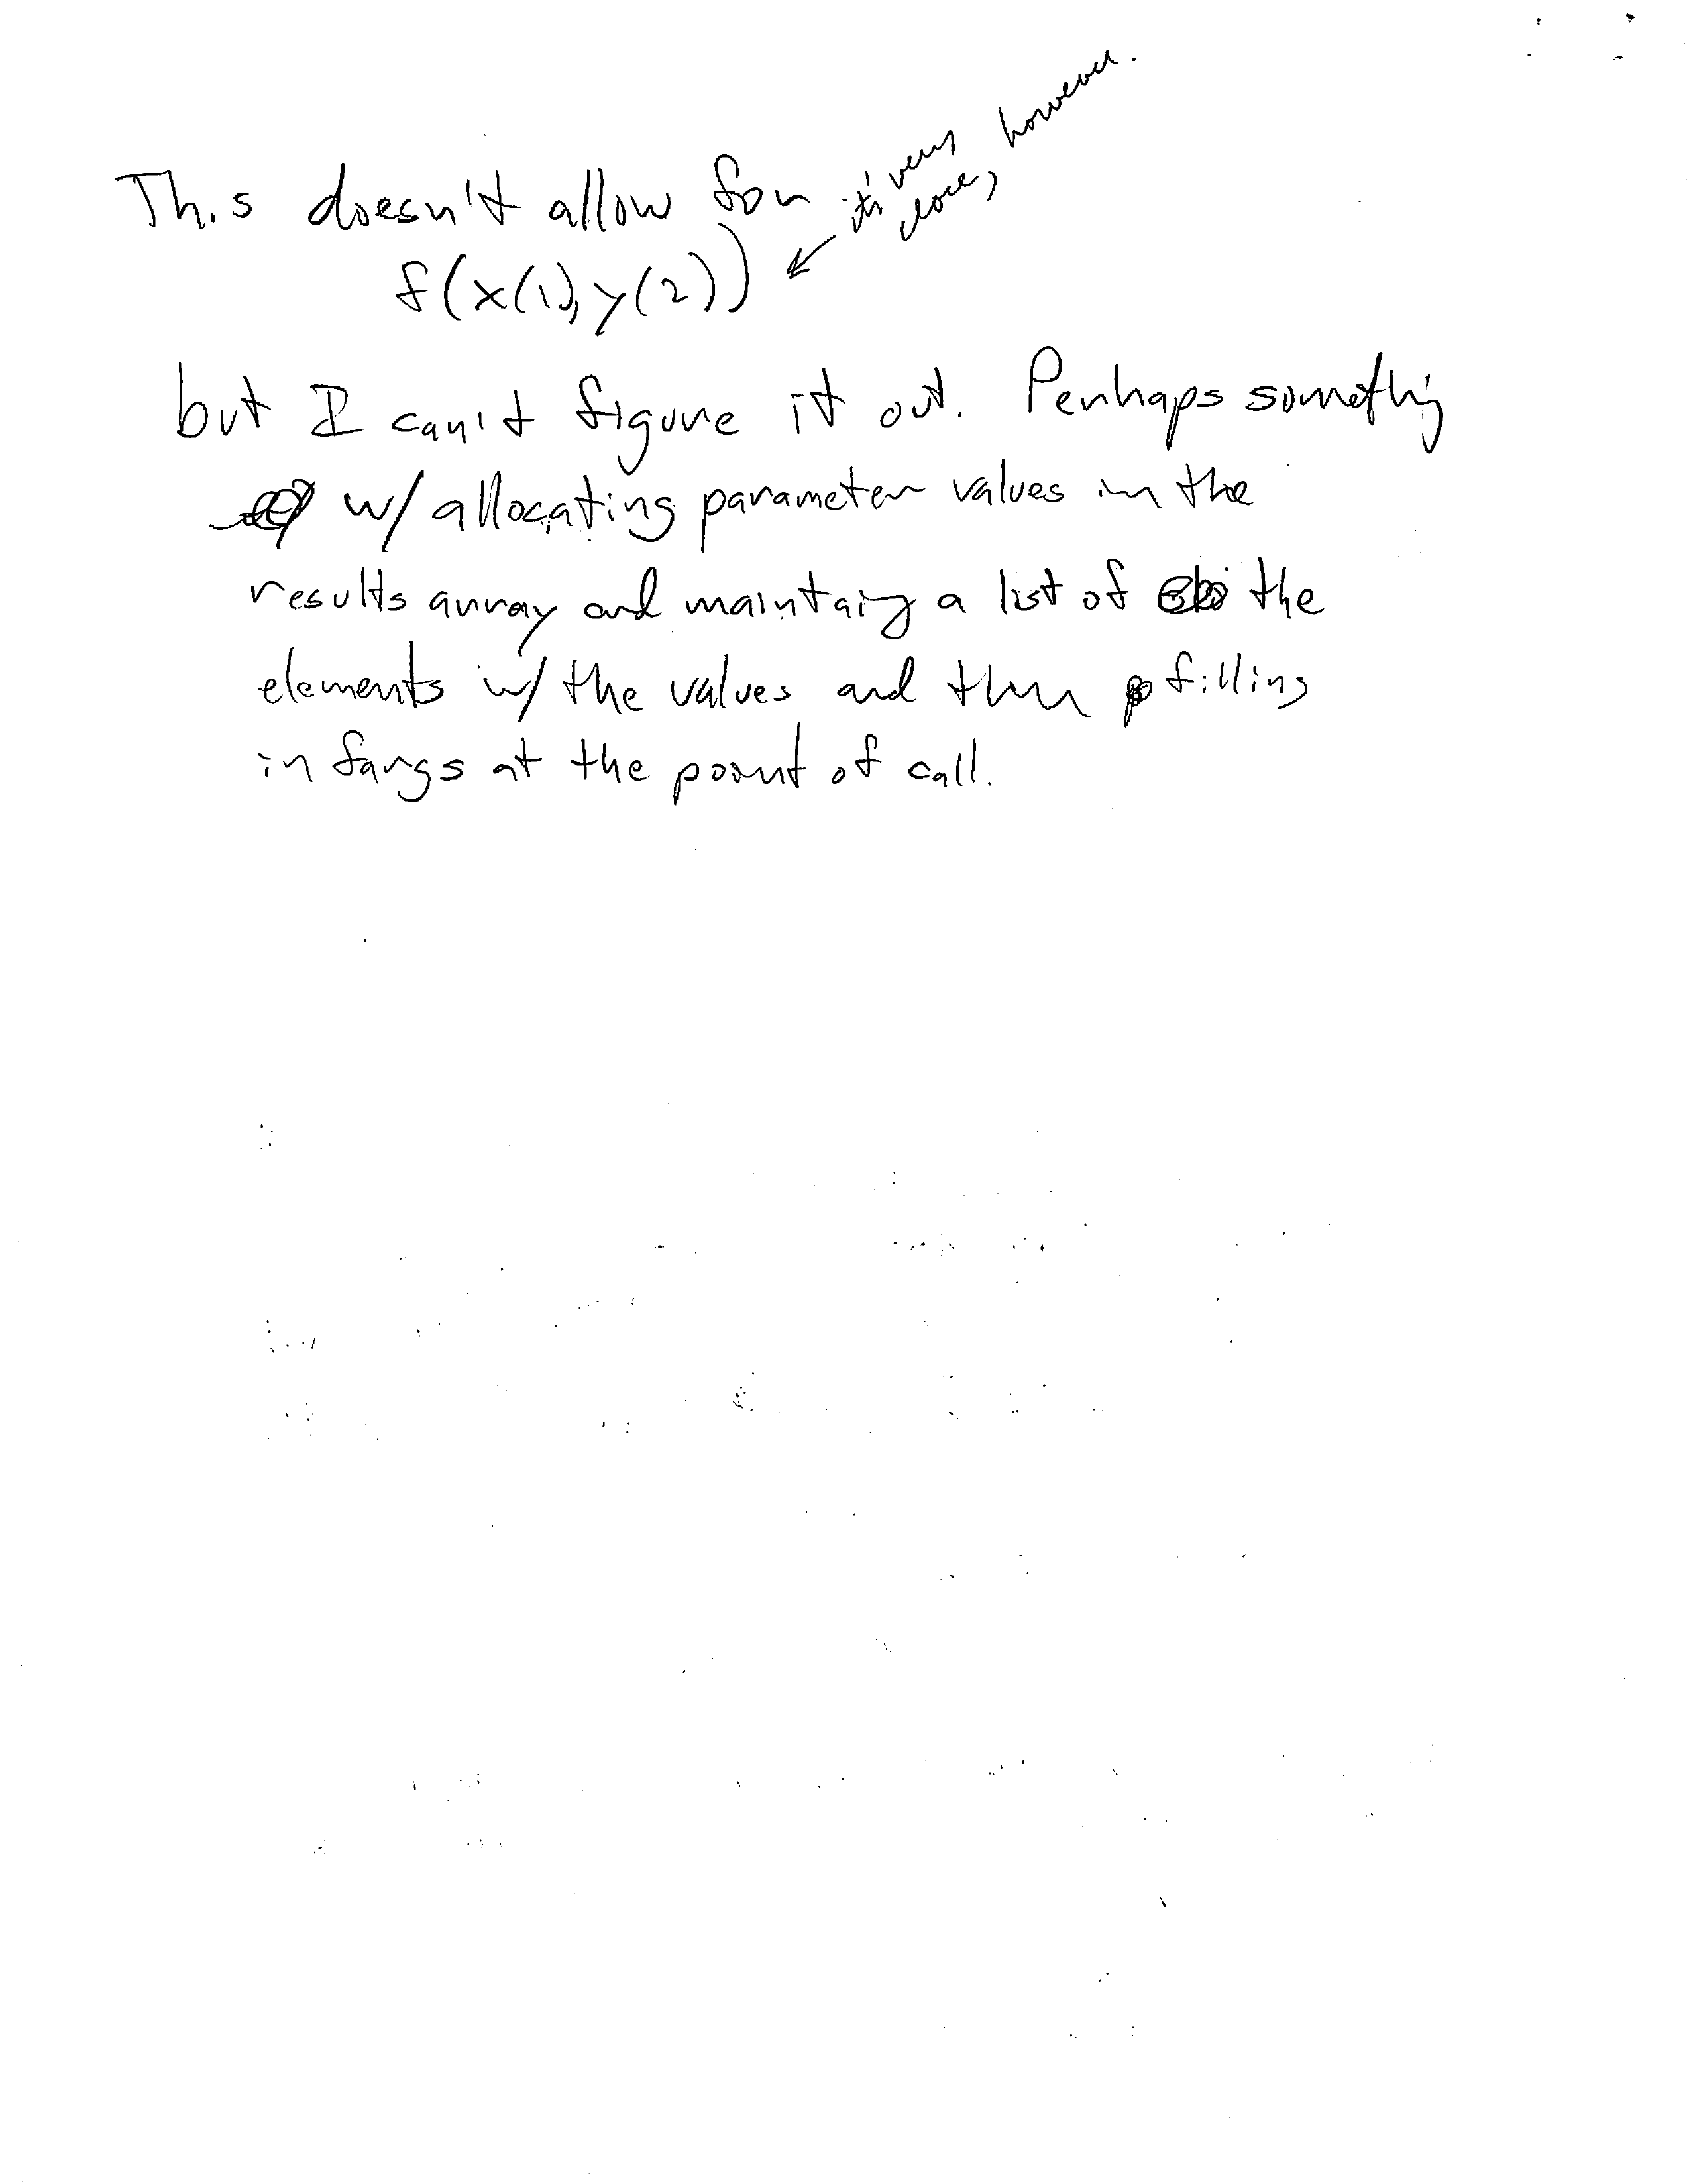 This doesn't allow for
it's very
close, however.
f(x(1), y(2))
but I can't figure it out. Perhaps something
w/ allocating parameter values in the
results array and maintaing a list of the
elements w/ the values and then filling
in fargs at the point of call.